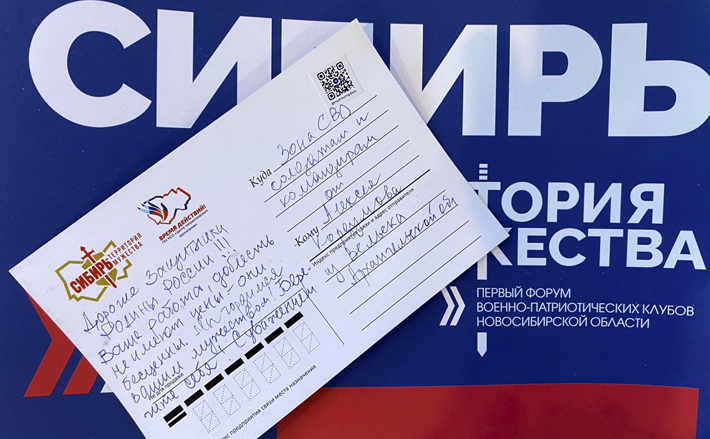 СИБИРЬ
ТОРИЯ
ЖЕСТВА
ПЕРВЫЙ ФОРУМ
ВОЕННО-ПАТРИОТИЧЕСКИХ КЛУБОВ
НОВОСИБИРСКОЙ ОБЛАСТИ
СИБИРЬ
ТЕРРИТОРИЯ
МУЖЕСТВА
ВРЕМЯ ДЕЙСТВИЙ!
Дорогие Защитники
Родины России!!!
Ваша работа доблесть
не имеют цены - они
бесценны. Мы гордимся
вашим мужеством. Бере
гите себя! С уважением
Куда Зона СВО
солдатам и
командирам
от
Кому Алексея
из Вельска
Архангельской обл
Индекс предприятия связи и адрес отправителя
Индекс предприятия связи места назначения